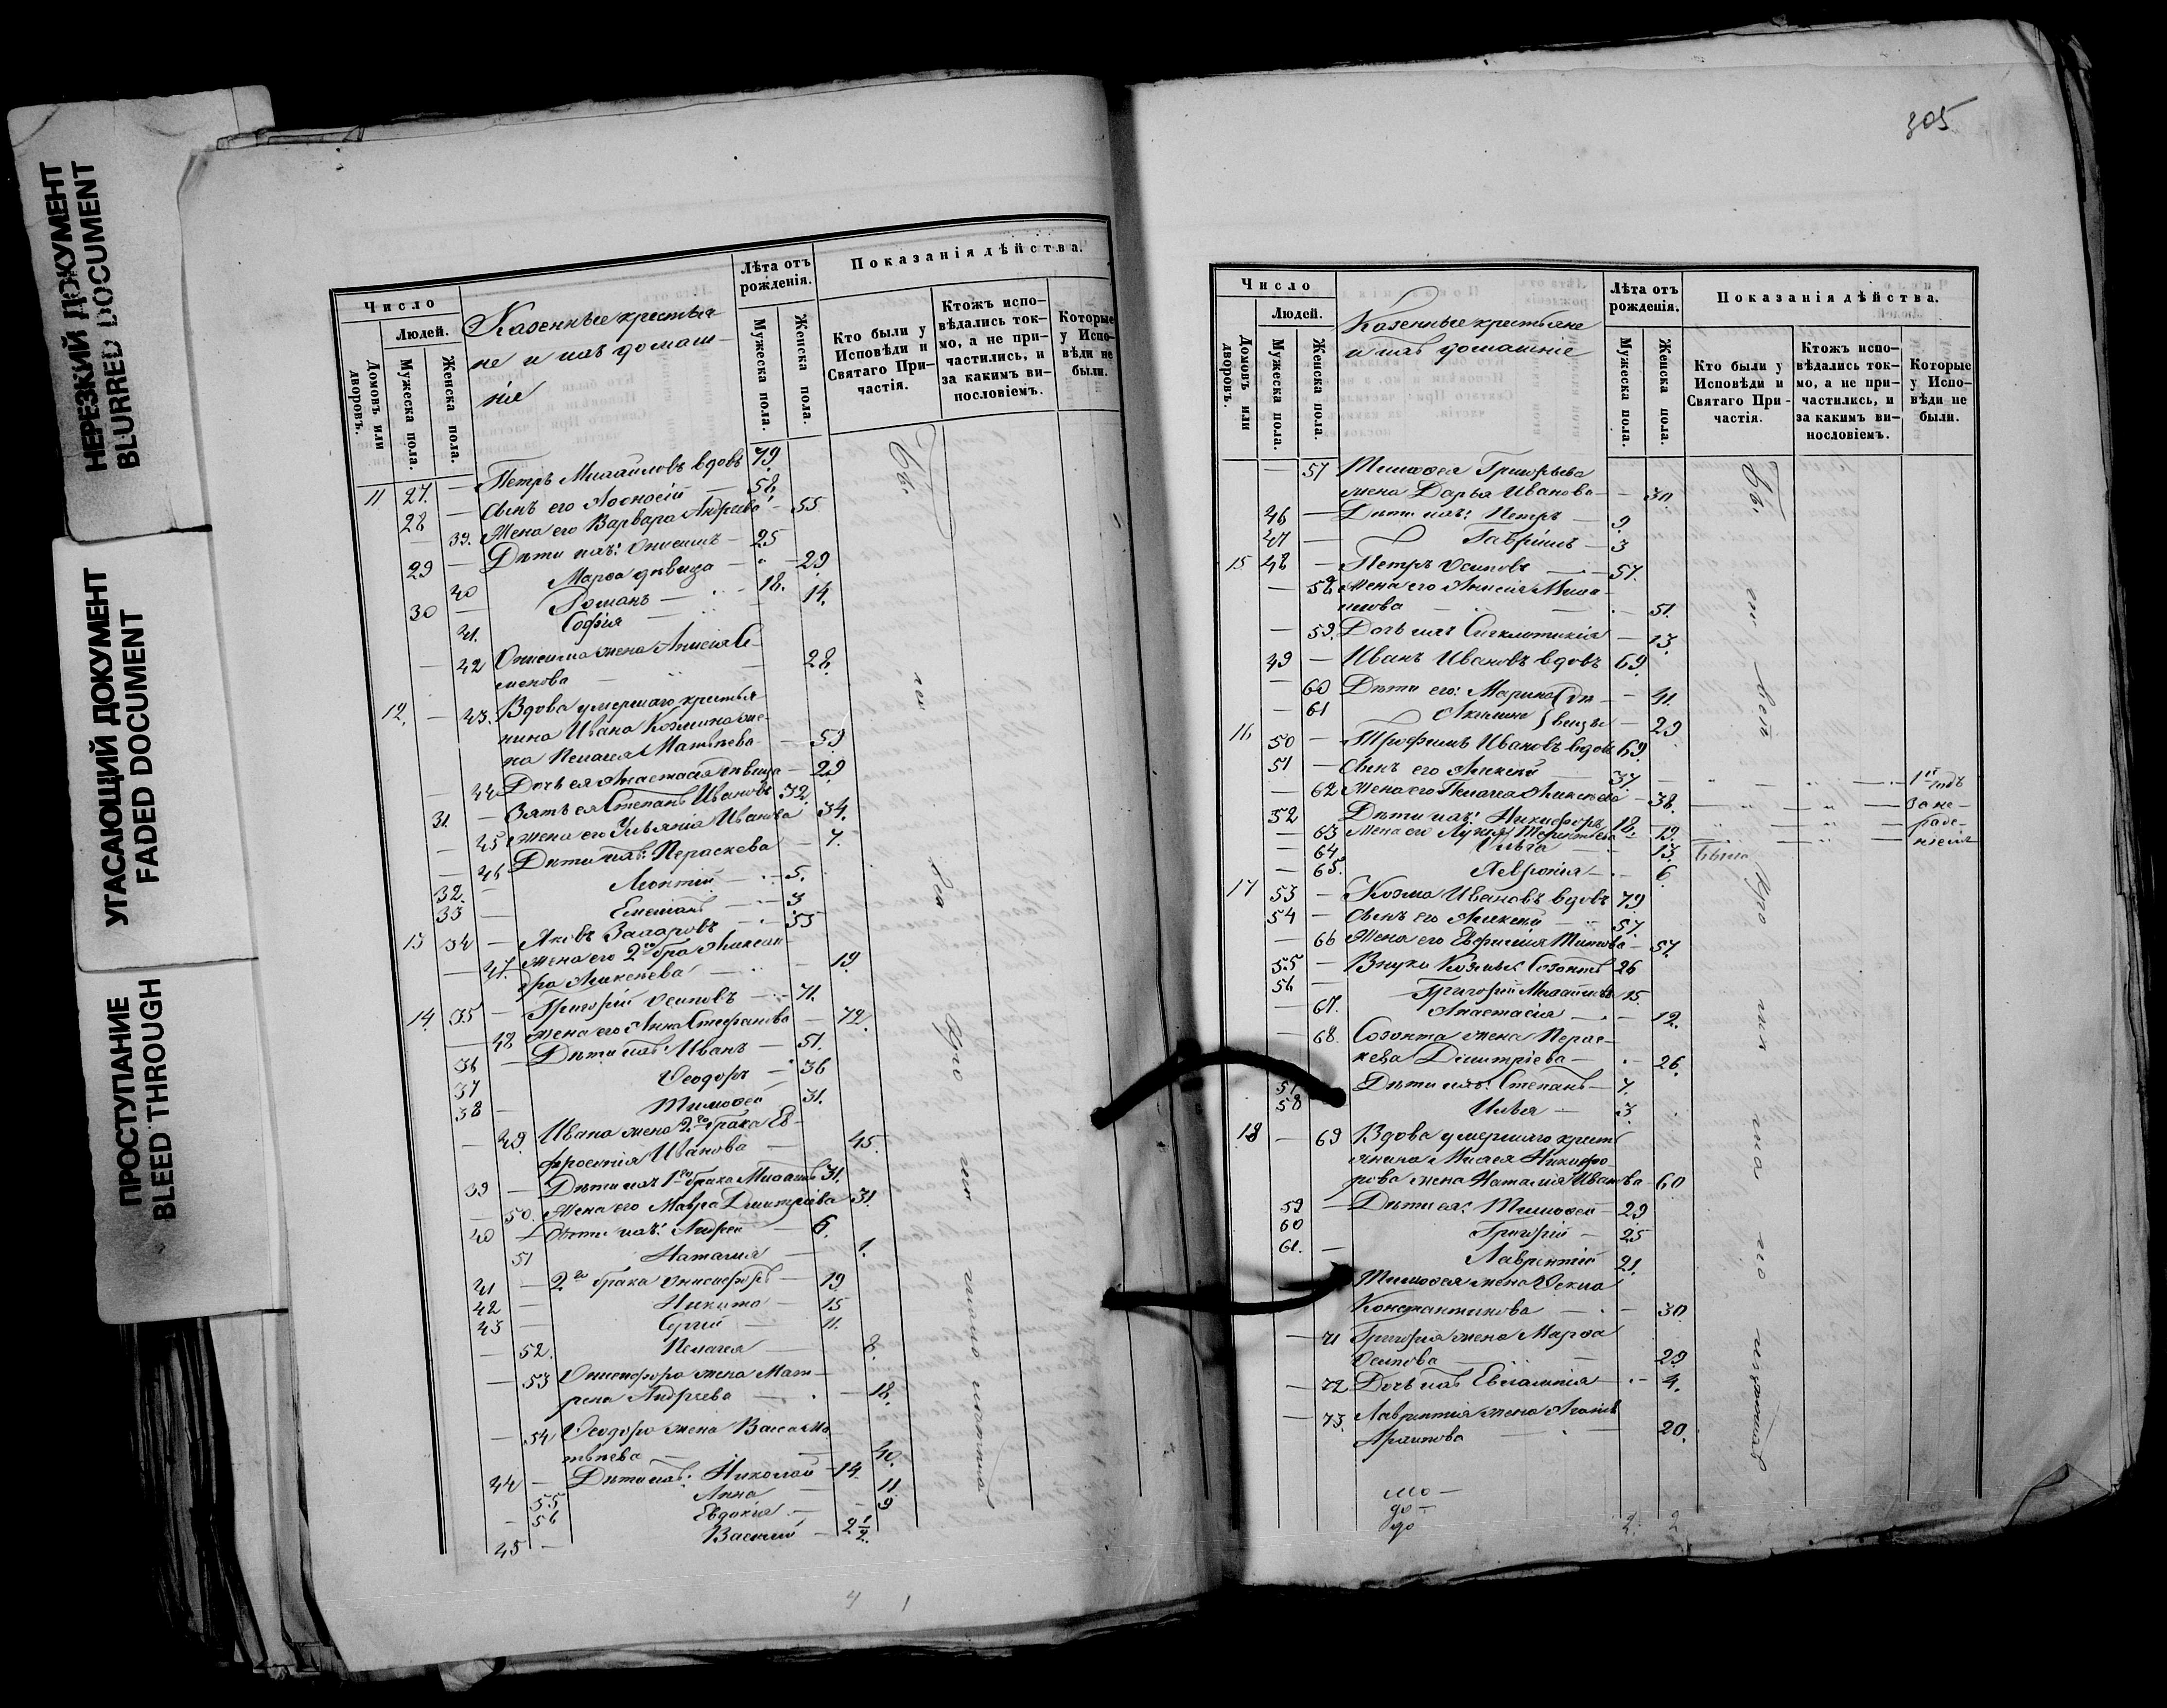 НЕРЕЗКИЙ ДОКУМЕНТ
BLURRED DOCUMENT
УГАСАЮЩИЙ ДОКУМЕНТ
FADED DOCUMENT
ПРОСТУПАНИЕ
BLEED THROUGH
Число
Людей.
Домовъ или дворовъ.
Мужеска пола.
Женска пола.
Казенные крестья-
не и ихъ домаш-
ніе
Лѣта отъ рожденія.
Мужеска пола.
Женска пола.
Показанія дѣйства.
Кто были у Исповѣди и Святаго При-
частія.
Ктожъ испо-
вѣдались ток-
мо, а не при-
частились, и
за какимъ ви-
нословіемъ.
Которые
у Испо-
вѣди не
были.
11 27. — Петръ Михайловъ вдовъ 79.
28 — Сынъ его Аѳонасій — 58.
— 39. Жена его Варвара Андреева — 55
29 — Дѣти ихъ: Онисимъ — 25
40 Марѳа дѣвица — 29
30 — Романъ — 18.
41. Софія — 14.
— 42 Онисима жена Анисія Се-
менова — 28.
12. — 43. Вдова умершаго крестья-
нина Ивана Козмина же-
на Пелагея Матвѣева — 59
— 44 Дочь ея Анастасія дѣвица — 29
31. — Зять ея Степанъ Ивановъ 32.
— 45 Жена его Ульянія Иванова 34.
— 46 Дѣти ихъ: Параскева — 7.
32. — Леонтій — 5.
33 — Емеліанъ — 3
13 34 — Яковъ Захаровъ — 55
— 47. Жена его 2го бра. Алексан-
дра Алексѣева — 19.
14 35 — Григорій Осиповъ — 71.
— 48 Жена его Анна Стефанова — 72.
36 — Дѣти ихъ: Иванъ — 51.
37 Ѳеодоръ — 36
38 — Тимоѳей 31.
— 49. Ивана жена 2го брака Ев-
фросинія Иванова — 45.
39 — Дѣти ихъ 1го брака Михаилъ 31.
— 50. Жена его Мавра Димитріева 31
40 — Дѣти ихъ: Андрей — 6.
51 Наталия — 1.
41 — 2го брака Онисифоръ — 19
42 — Никита — 15
43 — Сергій — 11.
— 52. Пелагея — 8.
— 53 Онисифора жена Мат-
рена Андреева — 18.
— 54 Ѳеодора жена Васса Ма-
твѣева — 40.
44 — Дѣти ихъ: Николай — 14.
55 Анна — 11
— 56 Евдокия — 9
45 — Василий — 2 1/2.
305
Число
Людей.
Домовъ или дворовъ.
Мужеска пола.
Женска пола.
Казенные крестьяне
и ихъ домашніе
Лѣта отъ рожденія.
Мужеска пола.
Женска пола.
Показанія дѣйства.
Кто были у
Исповѣди и
Святаго При-
частія.
Ктожъ испо-
вѣдались ток-
мо, а не при-
частилксь, и
за какимъ ви-
нословіемъ.
Которые
у Испо-
вѣди не
были.
— 57 Тимоѳея Григорьева
жена Дарья Иванова — 30.
46 — Дѣти ихъ: Петръ — 9.
47 — Гавріилъ — 3
15 48 — Петръ Осиповъ — 57.
— 58 Жена его Анисія Миха-
илова — 51.
— 59. Дочь ихъ Синклитикія — 13.
49 — Иванъ Ивановъ вдовъ 69.
— 60 Дѣти его: Марина дѣ- — 41.
— 61 Акилина вицы — 29
16 50 — Трофимъ Ивановъ вдовъ 69.
51 — Сынъ его Алексѣй 37. — 1й годъ
— 62 Жена его Пелагея Алексѣева — 38. — За не-
52 Дѣти ихъ: Никифоръ 18. — раде-
— 63 Жена его Лукія Терентьева 19. — ніемъ
— 64 Ольга — 13. Была
— 65. Ѳевронія — 6.
17 53 — Козма Ивановъ вдовъ 79
54 — Сынъ его Алексѣй — 57.
— 66 Жена его Евфимія Титова — 57.
55 — Внуки Козмы: Созонтъ 26
56 — Григорій Михайловъ 15
— 67. Анастасія — 12.
— 68. Созонта жена Парас-
кева Димитріева — 26.
57 Дѣти ихъ: Степанъ — 7.
58 Илья — 3.
18 — 69 Вдова умершаго крест-
янина Михея Никифо-
рова жена Наталия Иванова — 60
59 — Дѣти ея: Тимоѳей — 29.
60 Григорій — 25
61. — Лаврентій 21.
Тимоѳея жена Ѳекла
Константинова — 30.
— 71 Григорія жена Марѳа
Осипова — 29
— 72 Дочь ихъ Евлампія — 4.
— 73. Лаврентія жена
20.
2. 2